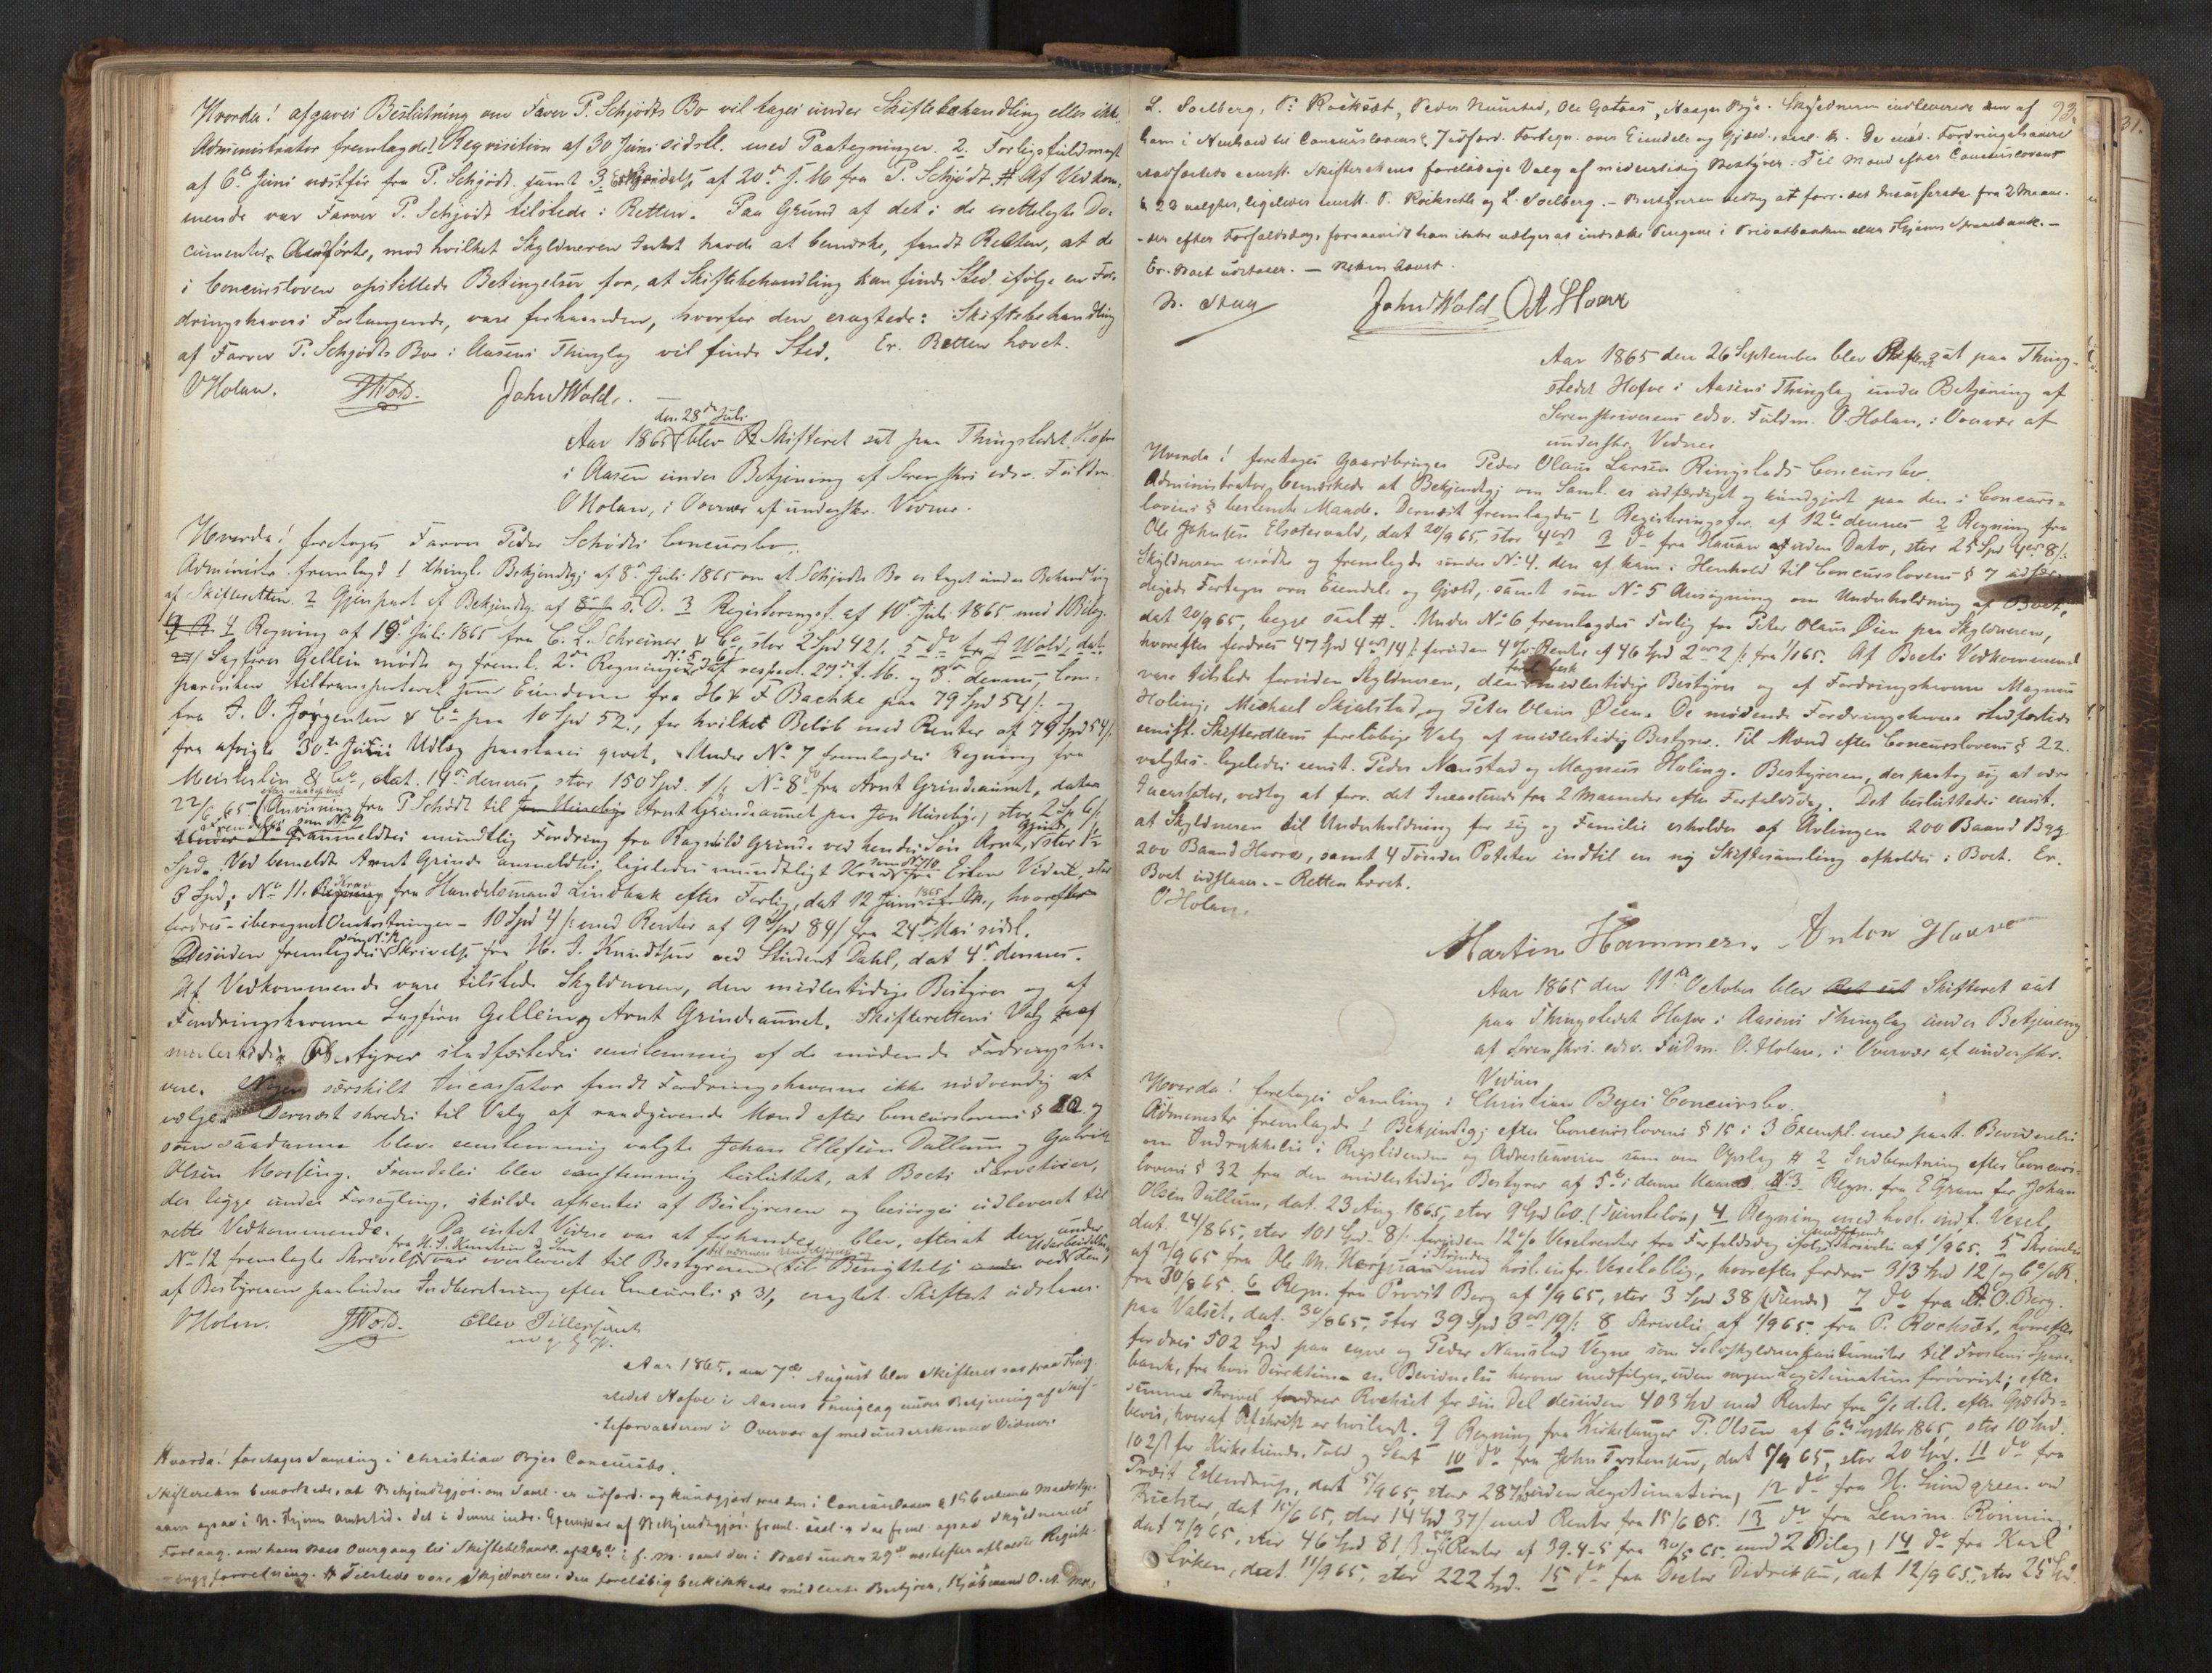 Hvorda! afgaves Beslutning om Farver P. Schjødts Bo vil tages under Skiftebehandling eller ikke.
Administrator fremlagde 1 Reqvisition af 30 Juni sidstl. med Paategninger. 2. Forligsfuldmagt
af 6te Juni næstfør fra P. Schjødt samt 3 af 20de f. M. fra P. Schjødt. # Af Vedkom-
mende var Farver P. Schjødt tilstede i Retten. Paa Grund af det i de irettelagte Do-
cumenter Anførte, mod hvilket Skyldneren Intet havde at bemærke, fandt Retten, at de
i Concursloven opstillede Betingelser for, at Skiftebehandling kan finde Sted ifølge en For-
dringshavers Forlangende, vare forhaanden, hvorfor den eragtede: Skiftebehandling
af Farver P. Schjødts Bo i Aasens Thinglag vil finde Sted. Er. Retten hævet.
OHolan. JWold. John JWold.
den 28de Juli
Aar 1865 blev Skifteret sat paa Thingstedet Hofve
i Aasen under Betjening af Sorenskri edsv. Fuldm.
OHolan, i Overvær af underskr. Vidner.
Hvorda! foretages Farver Peder Schødts Concursbo.
Administr. fremlagd 1 thingl. Bekjendtgj. af 8de Juli 1865 om at Schjødts Bo er taget under Behandling
af Skifteretten. 2 Gjenpart af Bekjendtg. af s. D. 3 Registreringsf. af 10de Juli 1865 med 1 Bilag.
4 Regning af 19de Juli 1865 fra C. L. Schreiner & Co, stor 2 Spd 42 /. 5 do fra J Wold, dat.
Sagfører Gellein mødte og freml. 2de Regninger No 5 og 6, dat respect. 27de f. M. og 3de dennes, Com-
parenten tiltransporteret som Eiendom fra H & F Bachke paa 79 Spd 54 /: og
fra J. O. Jørgensen & Co paa 10 Spd 52., for hvilket Beløb med Renter af 79 Spd 54 /:
fra afvigte 30te Juni Udlæg paastaaes givet. Under No 7 fremlagdes Regning fra
Meisterlin & Co, dat. 19de dennes, stor 150 Spd. 1 /: No 8 do fra Arnt Grindsaunet, dateret
22/6 65 (Anvisning fra P Schødt til Arnt Grindsaunet paa Jon Huseby) stor 2 Sp 6 /:
Fremdeles som No 9 anmeldtes mundtlig Fordring fra Ragnhild Grinde ved hendes Søn Arnt Grinde, stor 1½
Spd. Ved bemeldte Arnt Grinde anmeldtes ligeledes mundtligt Krav som No 10 fra Erken Vidvik, stor
3 Spd; No 11. Krav fra Handelsmand Lindbak efter Forlig, dat 12 Juni 1865, hvorefter
fordres iberegnet Omkostninger 10 Spd 4 /: med Renter af 9 Spd 84 /. fra 24de Mai sidstl.
Desuden fremlagdes som No 12 Skrivelse fra N. J. Knudtzon ved Student Dahl, dat 4de dennes.
Af Vedkommende vare tilstede Skyldneren, den midlertidige Bestyrer og af
Fordringshaverne Sagfører Gellein og Arnt Grindsaunet. Skifterettens Valg paa
midlertidig Bestyrer stadfæstedes eenstemmig af de mødende Fordringsha-
vere. Nogen særskilt Incassator fandt Fordringshaverne ikke nødvendig at
vælge. Dernæst skredes til Valg af raadgivende Mænd efter Concurslovens § 22 og
som saadanne blev eenstemmig valgte Johan Ellefsen Dullum og Gabriel
Olsen Mossing. Fremdeles blev eenstemmig besluttet, at Boets Farvetøier,
der ligge under Forsegling, skulde afhentes af Bestyreren og besørges udleveret til
rette Vedkommende. Da intet Videre var at forhandle blev, efterat den under
No 12 fremlagte Skrivelse fra N. J. Knudtzon & Søn var overleveret til Bestyreren til nærmere Undersøgelse og til Benyttelse ved Udarbeidelsen af den
af Bestyreren paabudne Indberetning efter Concursl. § 31, eragtet: Skiftet udstaaer.
OHolan. JWold. Ellev Tillersjaunet
m. f. P.
Aar 1865, den 7de August blev Skifteret sat paa Thing-
stedet Hofve i Aasens Thinglag under Betjening af Skif-
teforvalteren i Overvær af medunderskrevne Vidner.
Hvorda! foretages Samling i Christian Byes Concursbo.
Skifteretten bemærkede, at Bekjendtgjør. om Saml. er udfærd. og kundgjort paa den i Concursloven § 15 bestemte Maade lige-
som opsat i N. Thjems Amtstid. det i denne indr. Exemplar af Bekjendtgjør. freml. saal. # der freml. ogsaa Skyldnerens
Forlang. om hans Boes Overgang til Skiftebehandl. af 28de i f. M. samt den i Boet under 29de næstefter afholdte Registr.-
ingsforretning. # Tilstede vare Skyldneren, den foreløbig beskikkede midlert. Bestyrer, Kjøbmand O. A. Moe,
93.
L. Soelberg, P. Rocksæt, Peder Naustad, Ole Gotaas, Haagen Bye. Skyldneren indleverede den af
ham i Henhold til Concurslovens § 7 udførd. Fortegn. over Eiendele og Gjæld, saal. #. De mød. Fordringshavere
stadfæstede eenst. Skifterettens foreløbige Valg af midlertidig Bestyrer. Til Mænd efter Concursloven
§ 22 valgtes, ligeledes eenst. P. Rocksæth og L. Soelberg. – Bestyreren vedtog at forr. det Incasserede fra 2 Maane-
der efter Forfaldsdag, forsaavidt han ikke vælger at indsætte Pengene i Privatbanken eller Thjems Sparebank. –
Er. Boet udstaaer. – Retten hævet.
N. Krag John JWold OA Hoax
Aar 1865 den 26 September blev sat paa Thing-
stedet Hofve i Aasens Thinglag under Betjening af
Sorenskriverens edsv. Fuldm. O. Holan, i Overvær af
underskr. Vidner
Hvorda! foretages Gaardbruger Peder Olaus Larsen Ringstads Concursbo.
Administrator bemærkede at Bekjendtgj om Saml. er udfærdiget og kundgjort paa den i Concurs-
lovens § bestemte Maade. Dernæst fremlagdes 1 Registreringsfor. af 12te dennes 2 Regning fra
Ole Johnsen Elsetervald, dat 20/9 65, stor 4 ort 3 do fra Hauan uden Dato, stor 25 Spd 4 ort 8 /:
Skyldneren mødte og fremlagde under No 4. den af ham i Henhold til Concurslovens § 7 udfær-
digede Fortegn over Eiendele og Gjæld, samt som No 5 Ansøgning om Underholdning af Boet,
dat 20/9 65, begge saal #. Under No 6 fremlagdes Forlig fra Peter Olaus Øien paa Skyldneren,
hvorefter fordres 47 Spd 4 ort 14 /: foruden 4 % Renter af 46 Spd 2 ort 2 /: fra 1/1 65. Af Boets Vedkommende
vare tilstede foruden Skyldneren, den midlertidige Bestyrer og af Fordringshaverne Magnus
Holing, Michael Skjelstad og Peter Olaus Øien. De mødende Fordringshavere stadfæstede
eenst. Skifterettens foreløbige Valg af midlertidig Bestyrer. Til Mænd efter Concurslovens § 22
valgtes ligeledes eenst. Peder Naustad og Magnus Holing. Bestyreren, der paatog sig at være
Incassator, vedtog at forr. det Incasserede fra 2 Maaneder efter Forfaldsdag. Det besluttedes eenst.
at Skyldneren til Underholdning for sig og Familie erholder af Avlingen 200 Baand Byg
200 Baand Havre, samt 4 Tønder Poteter indtil en ny Skiftesamling afholdes i Boet. Er.
Boet udstaaer. – Retten hævet.
OHolan.
Martin Hammer. Anton Haave
Aar 1865 den 11te October blev Skifteret sat
paa Thingstedet Hofve i Aasens Thinglag under Betjening
af Sorenskri. edsv. Fuldm. O. Holan, i Overvær af underskr.
Vidner
Hvorda! foretages Samling i Christian Byes Concursbo.
Administr fremlagde 1 Bekjendtgj efter Concurslovens § 15 i 3 Exempl. med paat. Bevidnelse
om Indrykkelse i Rigstidenden og Adresseavisen samt om Opslag # 2 Indberetning efter Concurs-
lovens § 32 fra den midlertidige Bestyrer af 5te i denne Maaned. 3 Regn. fra E Gram for Johan
Olsen Dullum, dat. 23 Aug 1865, stor 9 Spd 60. (Tjenesteløn) 4 Regning med hosl. indf. Vexel,
dat. 24/8 65, stor 101 Spd 8 /: foruden 12 % Vexelrenter fra Forfaldsdag ifølge medfølgende Skrivelse af 1/9 65. 5 Skrivelse
af 2/9 65 fra Ole M. i Strinden med hosl. infr. Vexeloblig., hvorefter fordres 313 Spd 12 / og 6 % R.
fra 30/8 65. 6 Regn. fra Provst Berg af 1/9 65, stor 3 Spd 38 / (Tiende) 7 do fra A. O. Berg
paa Valset, dat. 30/8 65, stor 39 Spd 3 ort 19 /: 8 Skrivelse af 1/9 65 fra P. Rocksæt, hvorefter
fordres 502 Spd paa egne og Peder Naustad Vegne som Selvskyldnerkautionister til Frostens Spare-
bank, fra hvis Direktion en Bevidnelse herom medfølger, uden nogen Legitimation forøvrigt; efter
samme Skrivel fordrer Rocksæt for sin Del desuden 403 Spd med Renter fra d. A. efter Gjælds-
bevis, hvoraf Afskrift er hosl. 9 Regning fra Kirkesanger P. Olsen af 6te Septbr 1865, stor 10 Spd.
102 / for Kirketiende, Told og Skat 10 do fra John Torstensen, dat 5/9 65, stor 20 Spd. 11 do fra
Provst Erlendsen, dat 5/9 65, stor 28 uden Legitimation, 12 do fra H. Lindgreen ved
Richter, dat 15/6 65, stor 14 Spd 37 / med Renter fra 15/6 65. 13 do fra Lensm. Rønning,
dat 7/9 65, stor 46 Spd 81 / og Renter af 39-4-5 fra 30/5 65 med 2 Bilag, 14 do fra Karl
Løken, dat 11/9 65, stor 222 Spd. 15 do fra Doctor Didriksen, dat 12/9 65, stor 25 Spd